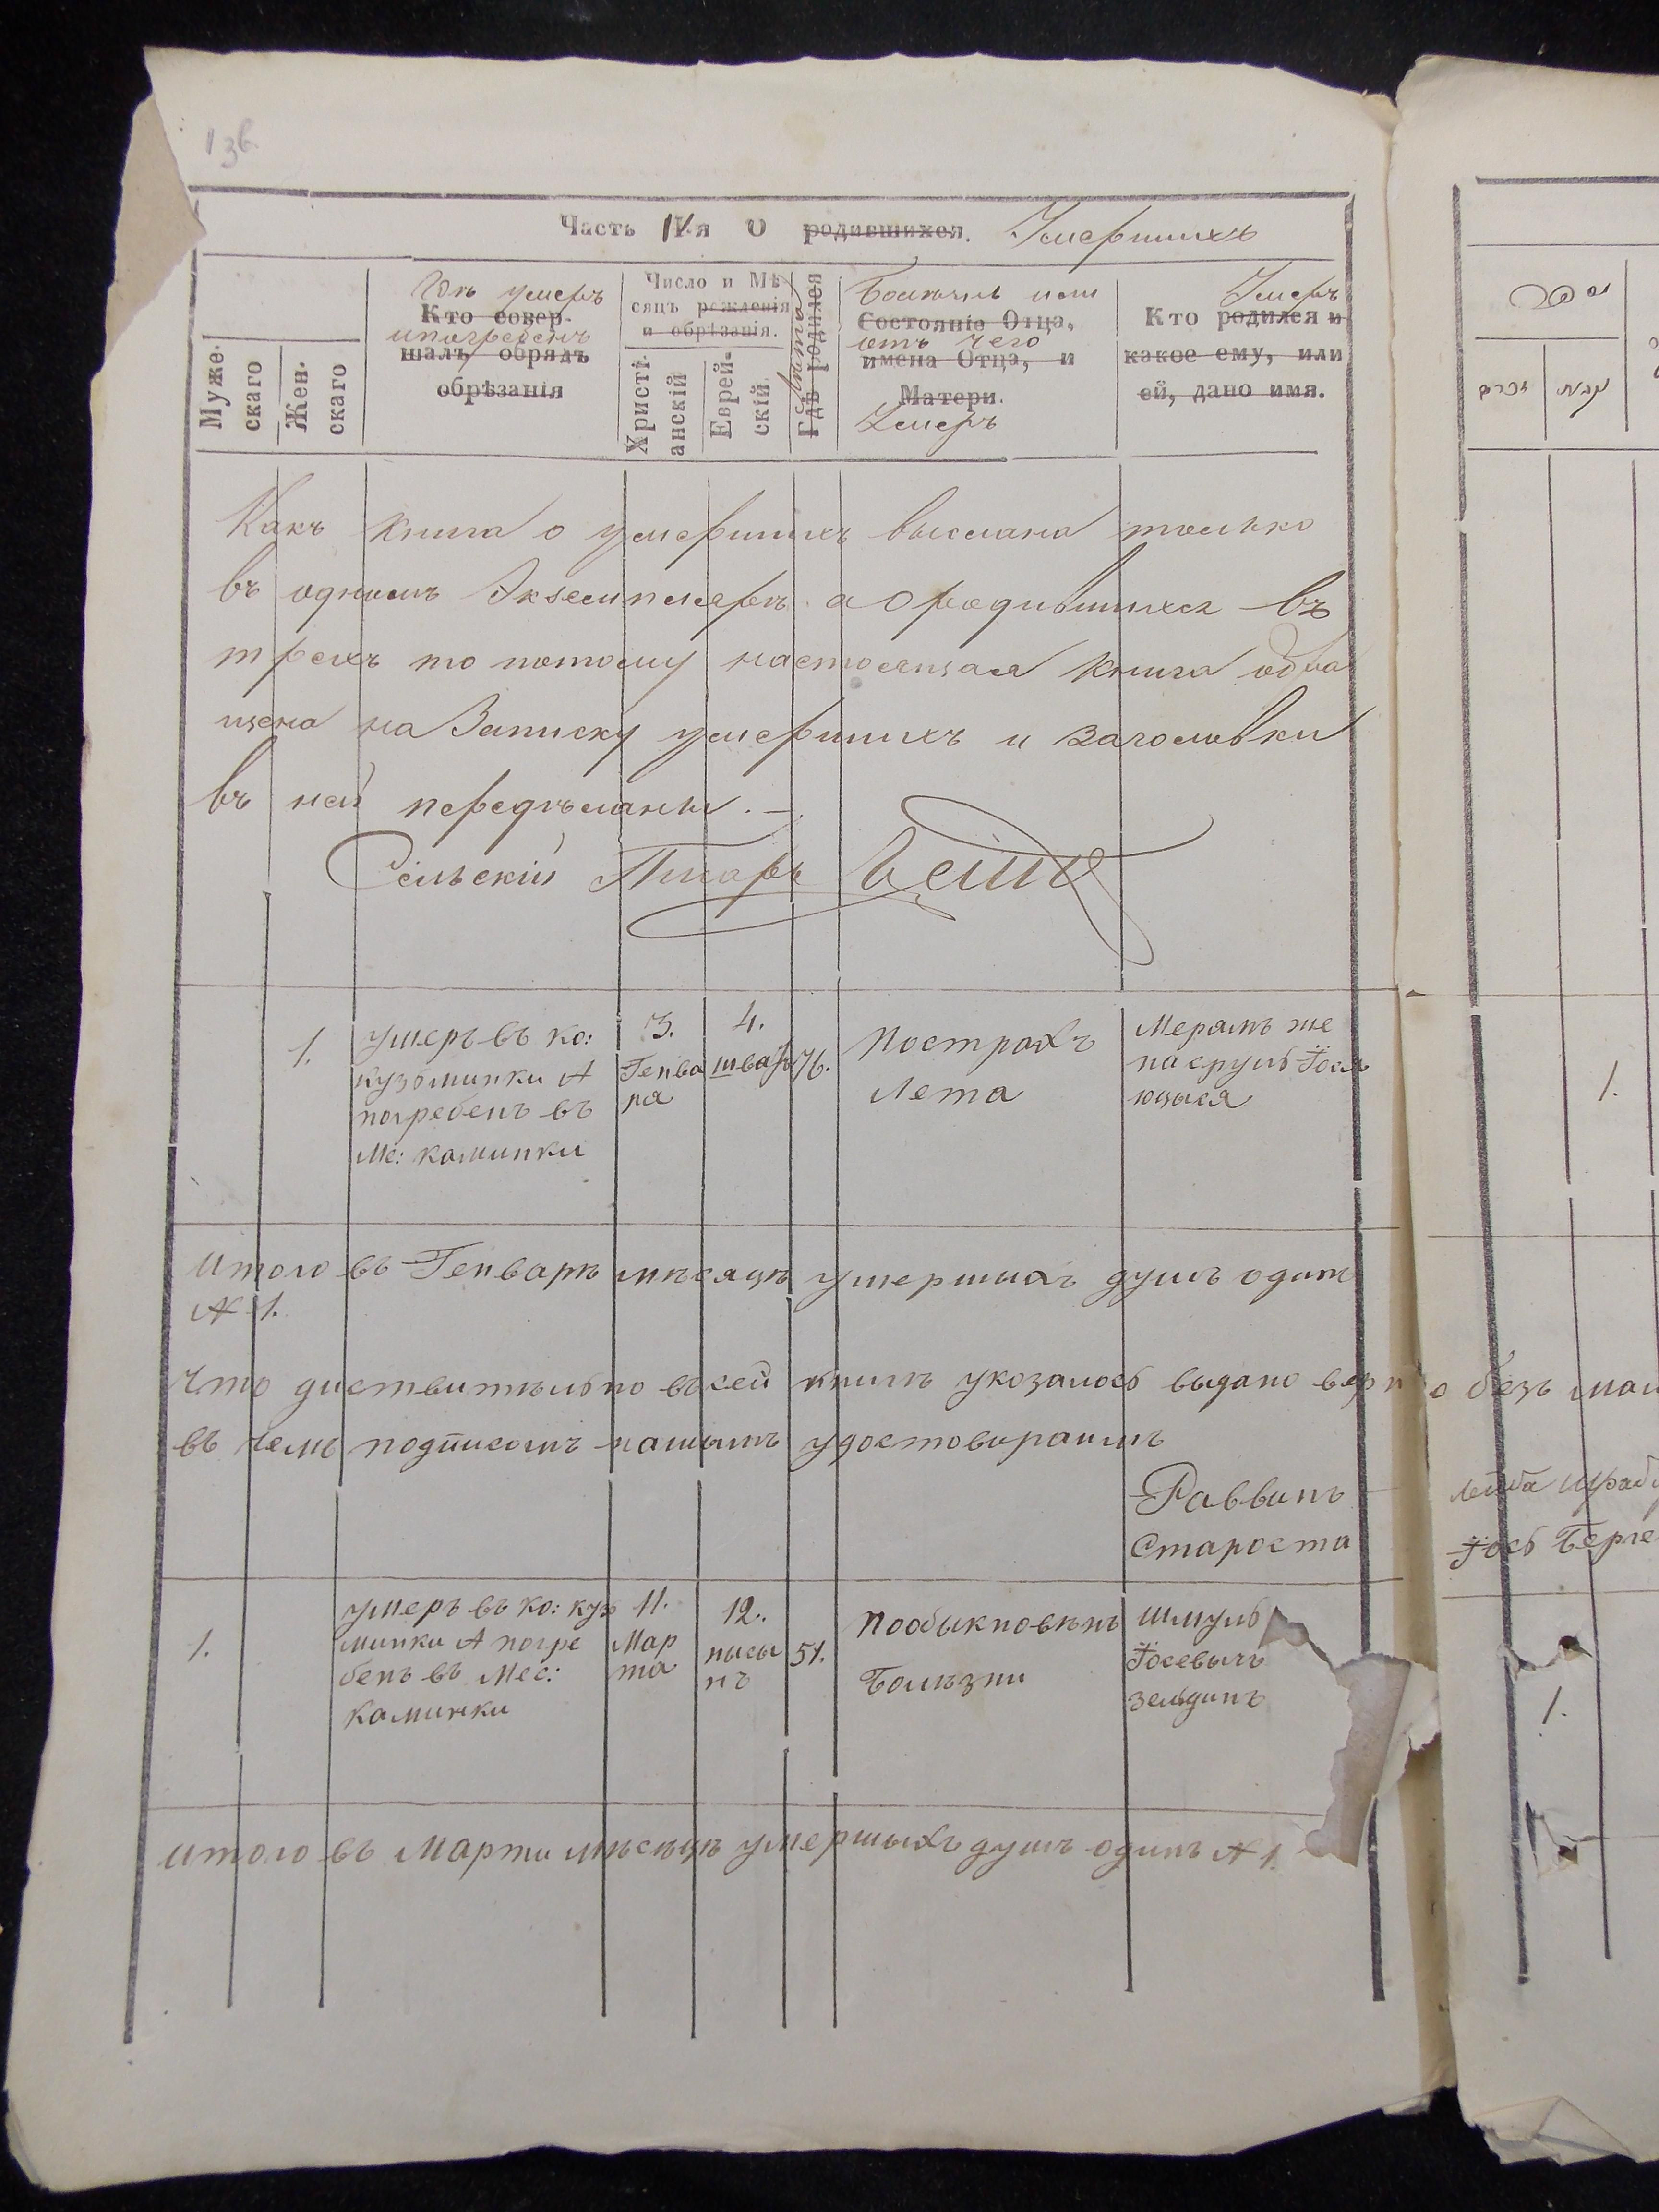 13об.
Часть IV-я О родившихся. Умершихъ
Муже-
скаго
Жен-
скаго
Гдѣ умеръ
Кто совер-
и погребенъ
шалъ обрядъ
обрѣзанія
Число и Мѣ-
сяцъ рожденія
и обрѣзанія.
Христі-
анскій
Еврей-
скій
Гдѣ родился
Болѣзнь или
Состояніе Отца,
отъ чего
имена Отца, и
Матери.
Умеръ
Умеръ
Кто родился и
какое ему, или
ей, дано имя.
Какъ книга о умершихъ выслана только
въ одномъ Экземплярѣ а о родившихся въ
трехъ то потому настоящая книга обра
щена на Записку умершихъ и заголовки
въ ней передѣланы. –
Сельскій Писарь
1.
умеръ въ ко:
кузьминки А
погребенъ въ
Ме: каминки
3.
Генва
ря
4.
шватъ
76.
Постротъ
Лета
Мерамъ же
на сруль Іося
1.
итого въ Генварѣ мѣсяцѣ умершихъ душъ одинъ
№ 1.
что диствительно въ сей книгѣ указалось выдано верно безъ
въ чемъ подписомъ нашымъ удостовираимъ
Раввинъ
Староста
Лейба
Іось Берге
1.
умеръ въ ко: куз
минки А погре
бенъ въ Мес:
каминки
11.
Мар
та
12.
нисы
нъ
51.
Пообыкновѣнъ
Болѣзни
Шмуль
Іосевычъ
зельдинъ
1.
итого въ Марти мѣсѣцѣ умершыхъ душъ одинъ № 1.